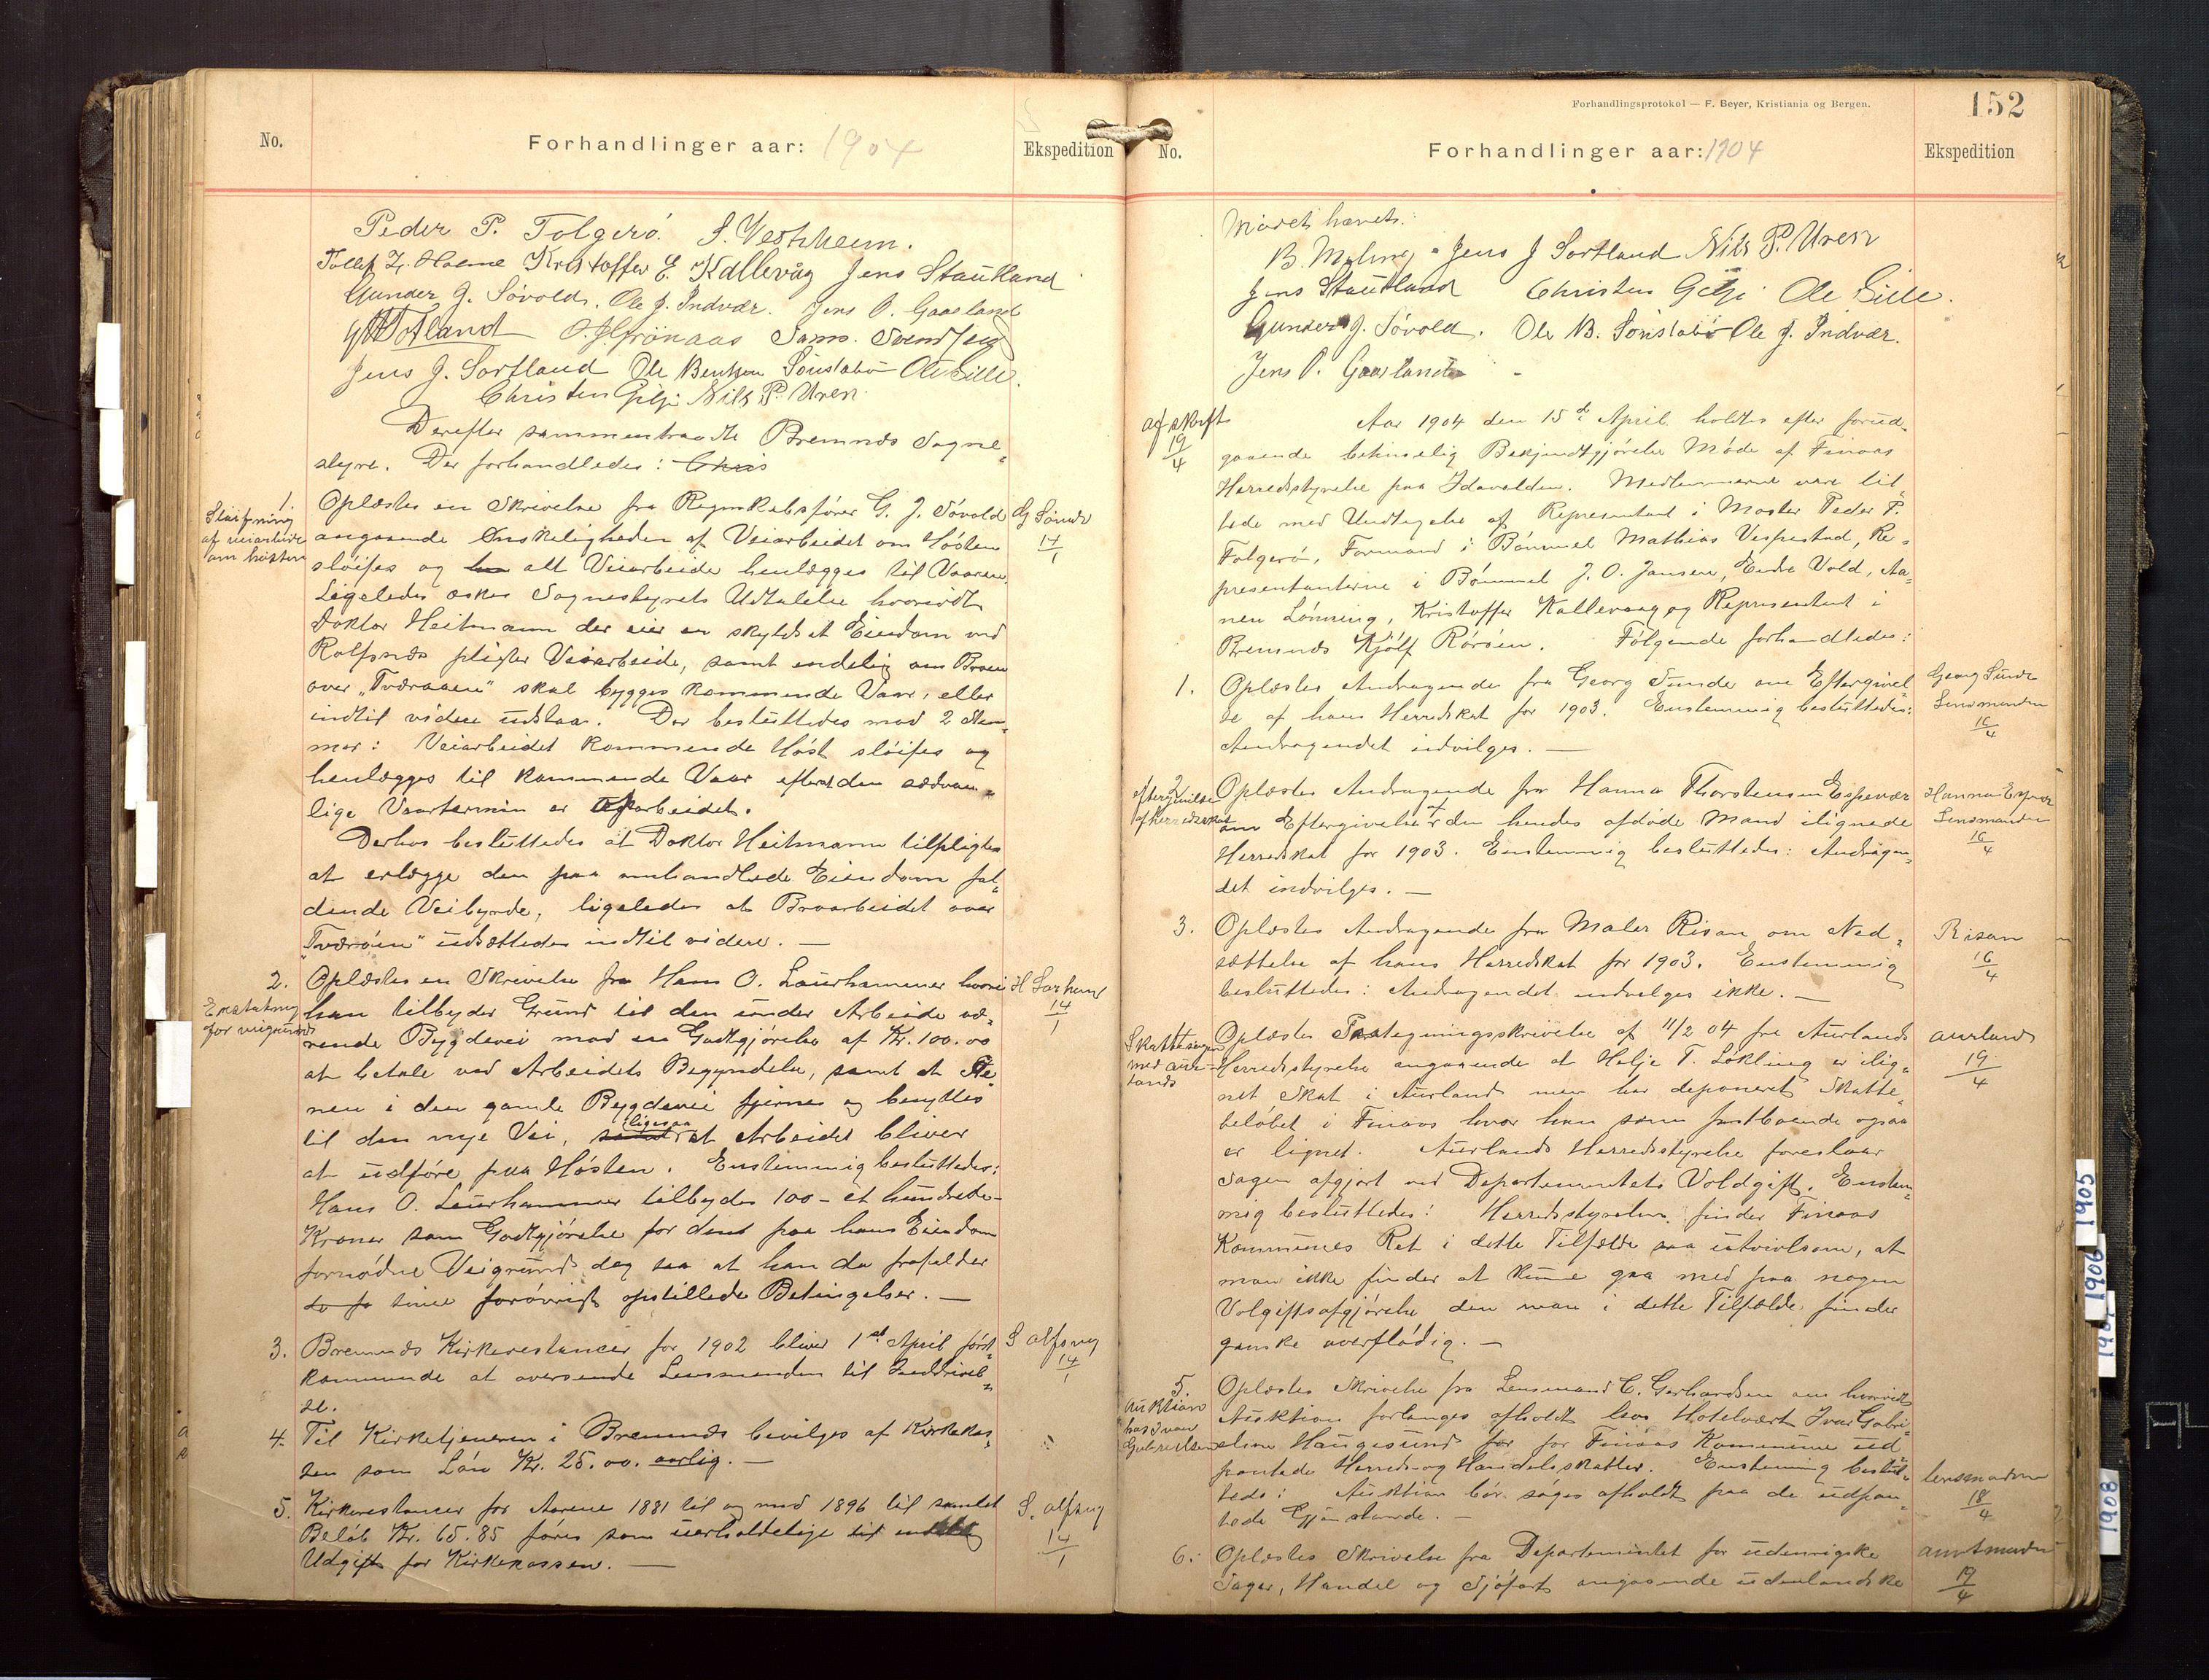 No.
Forhandlinger aar: 1904
Ekspedition
Peder P. Folgerö. S. Vestvheim.
Tollef Z. Holme Kristoffer E. Kallevåg Jens Stautland
Gunder J. Sövold. Ole J. Indvær. Jens O. Gaasland
Totland O. J. Grönaas Sams. Svendsen
Jens J. Sortland Ole Bentsen Sönstabö Ole Lille.
Christen Gilje Nils P. Uren.
Derefter sammentraadte Bremnes Sogne-
styre. Der forhandledes: Chris
1.
Sløifning af veiarbeide om høsten
Oplæstes en Skrivelse fra Regnskabsfører G. J. Sövold
angaaende Ønskeligheden af Veiarbeidet om Hösten
slöifes og alt Veiarbeide henlægges til Vaaren.
Ligeledes æskes Sognestyrets Udtalelse hvorvidt
Doktor Heitmann der eier en skyldsat Eiendom ved
Rolfsnæs pligter Veiarbeide, samt endelig om Broen
over „Tværaaen" skal bygges kommende Vaar, eller
indtil videre udstaa. Der besluttedes mod 2 Stem-
mer: Veiarbeidet kommende Höst slöifes og
henlægges til kommende Vaar efterat den sædvan-
lige Vaartermin er oparbeidet.
Derhos besluttedes at Doktor Heitmann tilpligtes
at erlægge den paa omhandlede Eiendom fal-
dende Veibyrde, ligeledes at Broarbeidet over
„Tværåen" udsættedes indtil videre. —
G Sönde
14/1
2.
Erstatning for veigrund
Oplæstes en Skrivelse fra Hans O. Laurhammer hvori
han tilbyder Grund til den under Arbeide væ-
rende Bygdevei mod en Godtgjörelse af Kr. 100.00
at betale ved Arbeidets Begyndelse, samt at Ste-
nen i den gamle Bygdevei fjernes og benyttes
til den nye Vei, samt ligesaa at Arbeidet bliver
at udföre paa Hösten. Enstemmig besluttedes:
Hans O. Laurhammer tilbydes 100 – et hundrede –
Kroner som Godtgjörelse for dent paa hans Eiendom
fornödne Veigrund dog saa at han da frafalder
de fo sine forövrigt opstillede Betingelser. —
14/1
3. Bremnæs Kirkerestancer for 1902 bliver 1st April först-
kommende at oversende Lensmanden til Inddrivel-
se.
S alfsnes
14/1
4. Til Kirketjeneren i Bremnæs bevilges af Kirkekas-
sen som Lön Kr. 25.00. aarlig. —
5. Kirkerestancer for Aarene 1881 til og med 1896 til samlet
Belöb Kr. 65.85 föres som uerholdelige til
Udgift for Kirkekassen. —
14/1
Forhandlingsprotokol — F. Beyer, Kristiania og Bergen.
152
No.
Forhandlinger aar: 1904
Ekspedition
Mödet hævet.
B. Mæhring Jens J Sortland Nils P. Uren
Jens Stautland Christen Gilje Ole Lille.
Gunder J. Sövold. Ole B. Sönstabö Ole J. Indvær.
Jens O. Gaasland
afskrift
19/4
Aar 1904 den 15de April holdtes efter forud-
gaaende behørelig Bekjendtgjörelse Møde af Finaas
Herredsstyrelse paa Idavolden. Medlemmerne vare til-
stede med Undtagelse af Repræsentant i Moster Peder P.
Folgerö, Formand i Bömmel Mathias Vespestad, Re-
præsentanterne i Bömmel J. O. Jansen, Endre Vold, Aa-
nen Lönning, Kristoffer Kallevaag og Repræsentant i
Bremnæs Kjölf Rörøen. Følgende forhandledes:
1. Oplæstes Andragende fra Georg Sunde om Eftergivel-
se af hans Herredskat for 1903. Enstemmig besluttedes:
Andragendet indvilges. —
Georg Sunde
Lensmanden
16/4
2
eftergivelse af herredsskat
Oplæstes Andragende fra Hanna Thorstensen Espevær
om Eftergivelse af den hendes afdöde Mand ilignede
Herredskat for 1903. Enstemmig besluttedes: Andragen-
det indvilges. —
Hanna Espevær
Lensmanden
16/4
3. Oplæstes Andragende fra Maler Risan om Ned-
sættelse af hans Herredskat for 1903. Enstemmig
besluttedes: Andragendet indvilges ikke. —
Risan
16/4
Skattesagen med Aurland
Oplæstes Paategningsskrivelse af 11/2 04 fra Aurlands
Herredsstyrelse angaaende at Helje T. Løkling er ilig-
net Skat i Aurland men har deponeret Skatte-
belöbet i Finaas hvor han som fastboende ogsaa
er lignet. Aurlands Herredsstyrelse foreslaar
Sagen afgjort ved Departementets Voldgift. Enstem-
mig besluttedes: Herredsstyrelsen finder Finaas
Kommunes Ret i dette Tilfælde saa utvivlsom, at
man ikke finder at kunne gaa med paa nogen
Volgiftsafgjörelse den man i dette Tilfælde finder
ganske overflödig. —
Aurland
19/4
5.
Auktion hos Ivar Gabrielsen
Oplæstes Skrivelse fra Lensmand C. Gerhardsen om hvorvidt
Auktion forlanges afholdt hos Hotelvært Ivar Gabri-
elsen Haugesund for for Finaas Kommune ud
pantede Herreds- og Handelsskatter. Enstemmig beslut-
tedes: Auktion bör søges afholdt paa de udpan-
tede Gjenstande. —
lensmanden
18/4
6. Oplæstes Skrivelse fra Departementet for udenrigske
Sager, Handel og Sjöfart angaaende udenlandske
amtmanden
19/4
1905
1906
1908